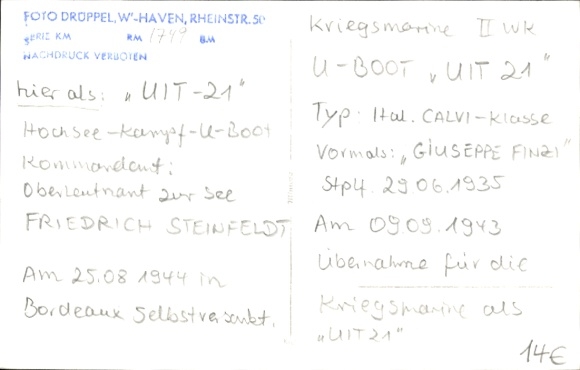 FOTO DRÜPPEL, W'-HAVEN, RHEINSTR. 50
SERIE KM RM 1749 BM
NACHDRUCK VERBOTEN
hier als: „UIT-21"
Hochsee-Kampf-U-Boot
Kommandant:
Oberleutnant zur See
FRIEDRICH STEINFELDT
Am 25.08 1944 in
Bordeaux selbstversenkt.
Kriegsmarine II WK
U-BOOT „UIT 21"
Typ: Ital. CALVI-Klasse
Vormals: „GIUSEPPE FINZI"
Stplf. 29.06.1935
Am 09.09.1943
Übernahme für die
Kriegsmarine als
„UIT21"
14€